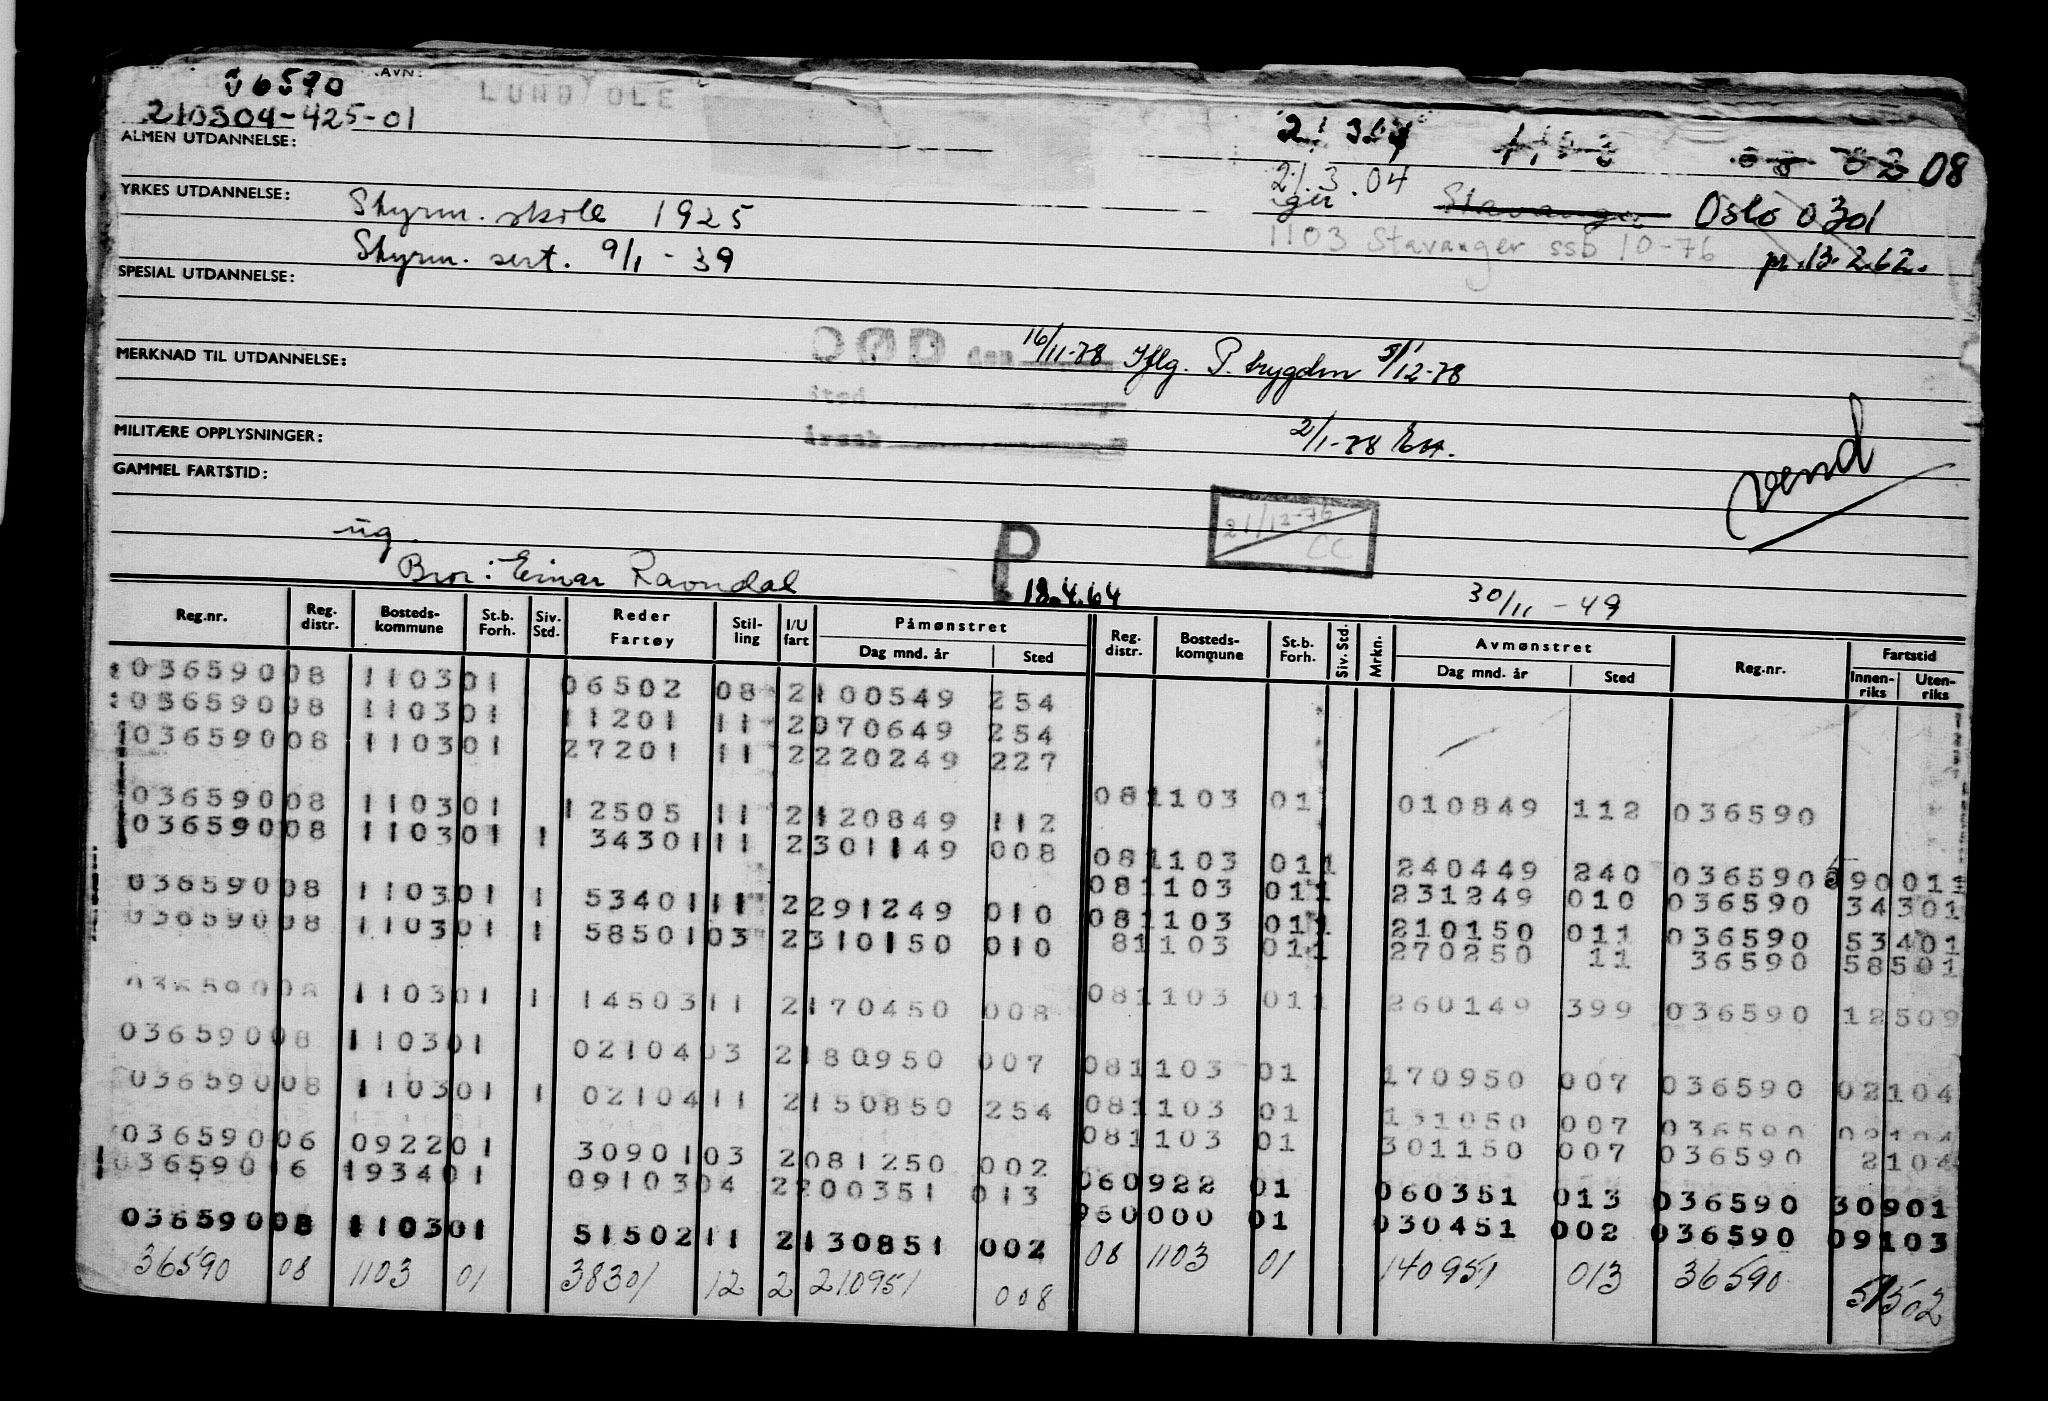 36590 NAVN: LUND OLE
210304-425-01
ALMEN UTDANNELSE:
08
21.3.04
YRKES UTDANNELSE: Styrm. skole 1925 Stavanger Oslo 0301
1103 Stavanger ssb 10-76 pr. 13.2.62.
Styrm. sert. 9/1 - 39
SPESIAL UTDANNELSE:
DØD den 16/11-78 Iflg. P. trygden 5/12-78
MERKNAD TIL UTDANNELSE:
Sted
årsak 2/1-78
MILITÆRE OPPLYSNINGER:
vend
GAMMEL FARTSTID:
21/12-76
CC
ug.
P
Bror: Einar Ravndal 18.4.64 30/11 - 49
Reg.nr. Reg. distr. Bosteds-kommune St.b. Forh. Siv. Std. Reder Fartøy Stil-ling I/U fart Påmønstret Dag mnd. år Sted Reg. distr. Bosteds-kommune St.b. Forh. Siv. Std. Mrkn. Avmønstret Dag mnd. år Sted Reg.nr. Fartstid Innen-riks Uten-riks
036590 08 1103 01 06502 08 2 100549 254
036590 08 1103 01 11201 11 2 070649 254
036590 08 1103 01 27201 11 2 220249 227
08 1103 01 010849 112 036590
036590 08 1103 01 12505 11 2 120849 112
036590 08 1103 01 1 34301 11 2 301149 008
08 1103 01 1 240449 240 036590 90011
08 1103 01 1 231249 010 036590 34301
036590 08 1103 01 1 53401 11 2 291249 010
08 1103 01 1 210150 011 036590 53401
036590 08 1103 01 1 58501 03 2 310150 010
8 1103 01 1 270250 11 36590 58501
036590 08 1103 01 1 14503 11 2 170450 008
08 1103 01 1 260149 399 036590 12509
036590 08 1103 01 02104 03 2 180950 007
08 1103 01 170950 007 036590 02104
036590 08 1103 01 1 02104 11 2 150850 254
08 1103 01 131050 007 036590 02104
08 1103 01 301150 007 036590 2104
036590 06 0922 01 30901 03 2 081250 002
06 0922 01 060351 013 036590 30901
036590 16 1934 01 09103 04 2 200351 013
96 0000 01 030451 002 036590 09103
036590 08 1103 01 51502 11 2 130851 002
08 1103 01 140951 013 36590 51502
36590 08 1103 01 38301 12 2 210951 008